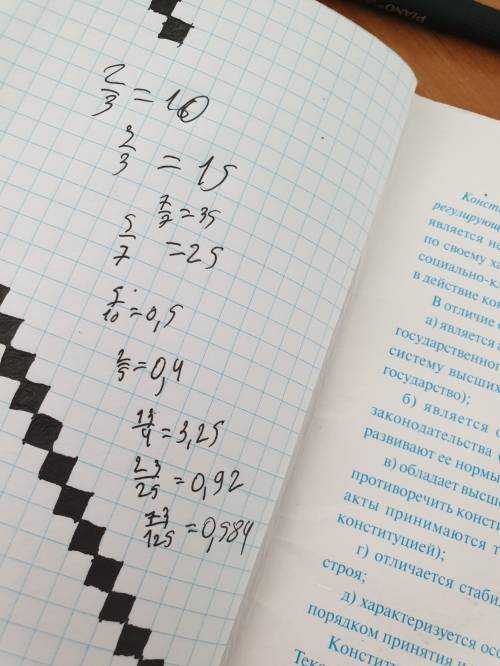 PIANO
2/3 = 10
3/3 = 15
7/7 = 35
5/7 = 25
5/10 = 0,5
2/5 = 0,4
13/4 = 3,25
23/25 = 0,92
73/125 = 0,584
Конст
регулирующ
является не
по своему ха
социально-кл
в действие кон
В отличие
а) является а
государственног
систему высши
государство);
б) является с
законодательства (
развивают ее нормы
в) обладает высш
противоречить консти
акты принимаются
конституцией);
г) отличается стабил
строя;
д) характеризуется осо
порядком принятия и
Конститу